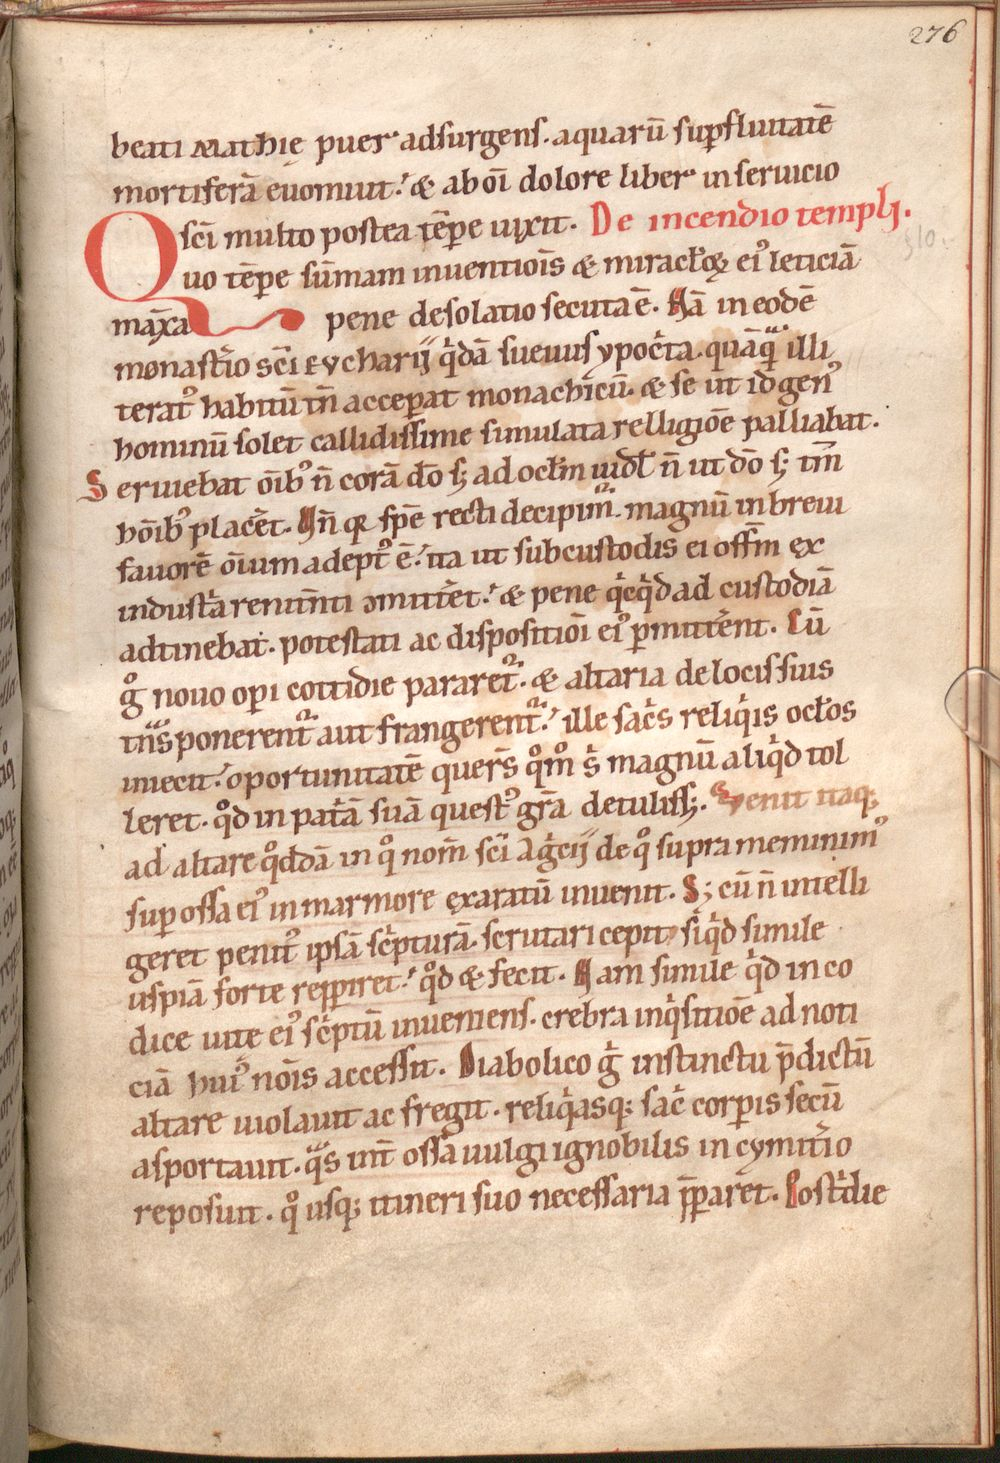 276
beati Mathię puer adsurgens. aquarū supfluitatē
mortiferā euomuit. & ab oī dolore liber in seruicio
scī multo postea tēpe uixit. De incendio templi.
Quo tēpe sūmam inuentiois & miraclorꝝ ei' leticiā
maxīa pene desolatio secuta ē. Nā in eodē
monastio scī eycharij qdā sueuus ypocta. quāq illi
terat' habitū tn̄ acceperat monachicū. & se ut id gen'
hominū solet callidissime simulata relligioē palliabat.
Seruiebat oīb' n̄ corā dō sꝫ ad oclm uidl n̄ ut dō sꝫ tm̄
hoīb' placēt. Un̄ qr spē recti decipim. magnū in breui
fauorē oīum adept' ē. ita ut subcustodis ei offm̄ ex
industa renitnti ɔmittet. & pene qcqd ad custodiā
adtinebat. potestati ac dispositioī ei' pmittent. Cū
g nouo opi cottidie pararet. & altaria de locis suis
tns ponerent aut frangerent. ille sacs reliqis oclos
iniecit. oportunitatē quers qm s magnū aliqd tol
leret. qd in patā suā quest' gra detulissꝫ. Venit itaqꝫ
ad altare qddā in q nom̄ scī Agcij de q supra meminim'
sup ossa ei' in marmore exaratū inuenit. Sꝫ cū n̄ intelli
geret penit' ipsā scpturā. scrutari cepit siqd simile
uspiā forte repiret. qd & fecit. Nam simile qd in co
dice uite ei' scptū inueniens. crebra inqsitioē ad noti
ciā hui' nois accessit. Diabolico g instinctu p̄dictū
altare uiolauit ac fregit. reliqasqꝫ sac corpis secū
asportauit. qs int ossa uulgi ignobilis in cymitio
reposuit. q usqꝫ itineri suo necessaria p̄paret. Postdie